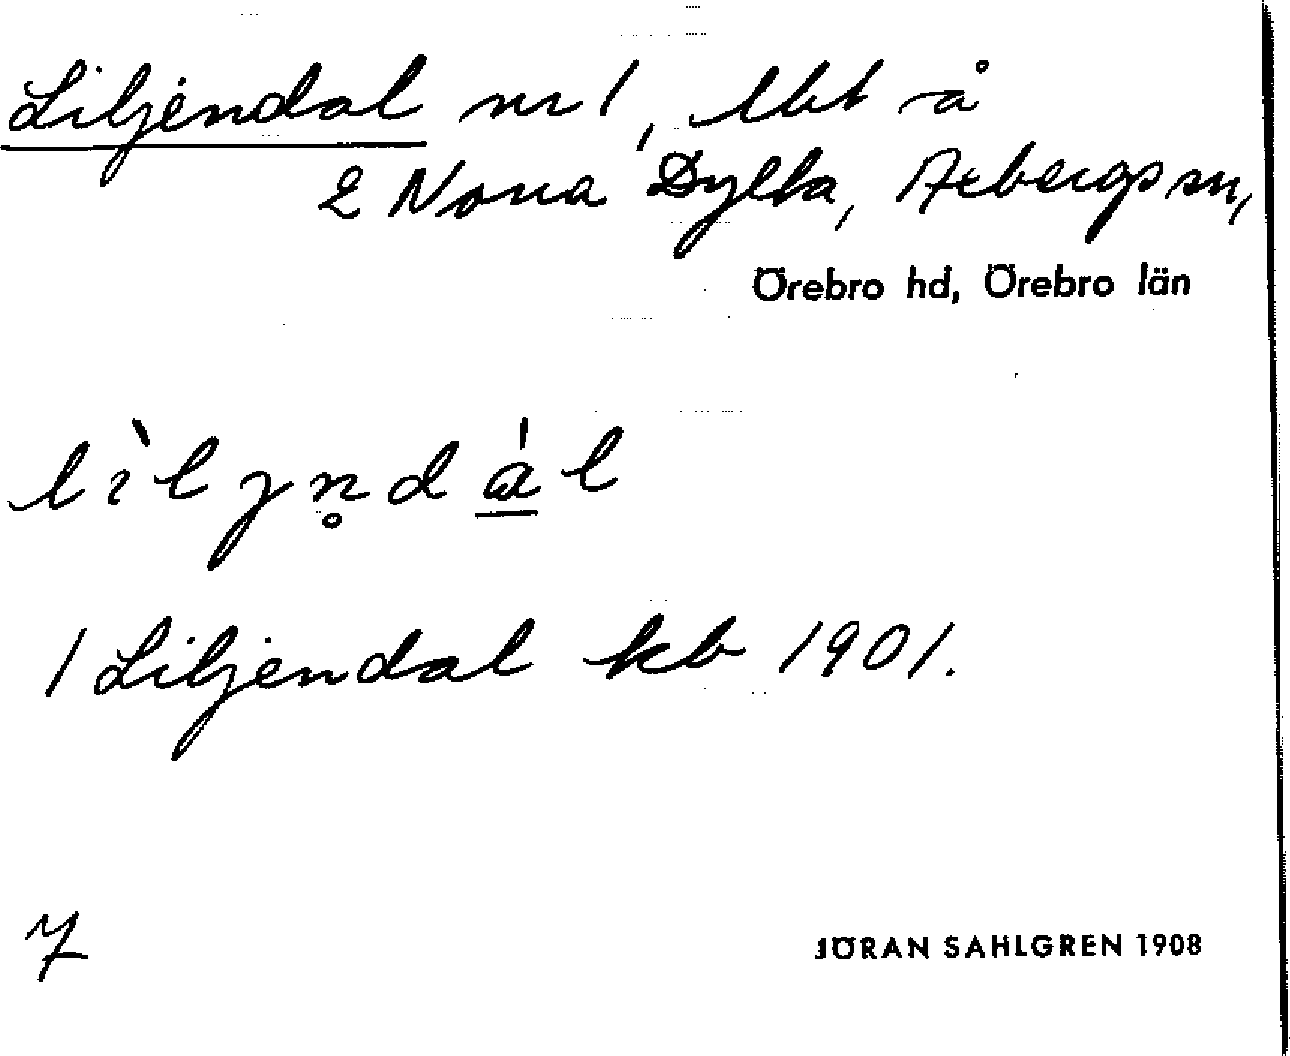 Liljendal nr 1, lht å
2 Norra Dylta, Axbergs sn,
Örebro hd, Örebro län
lìljn̥dál
1 Liljendal kb 1901.
7
JÖRAN SAHLGREN 1908